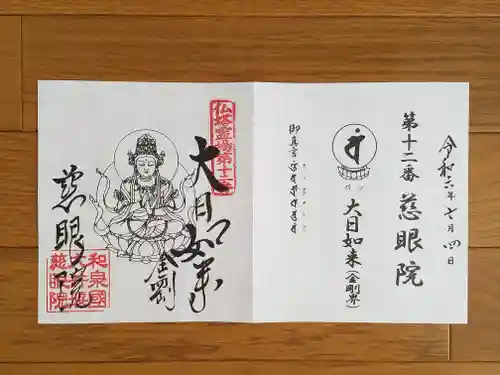 令和六年七月四日
第十二番 慈眼院
バン
大日如来(金剛界)
御真言
仏塔霊場第十二番
大日如来
金剛
慈眼院
和泉國
慈眼院